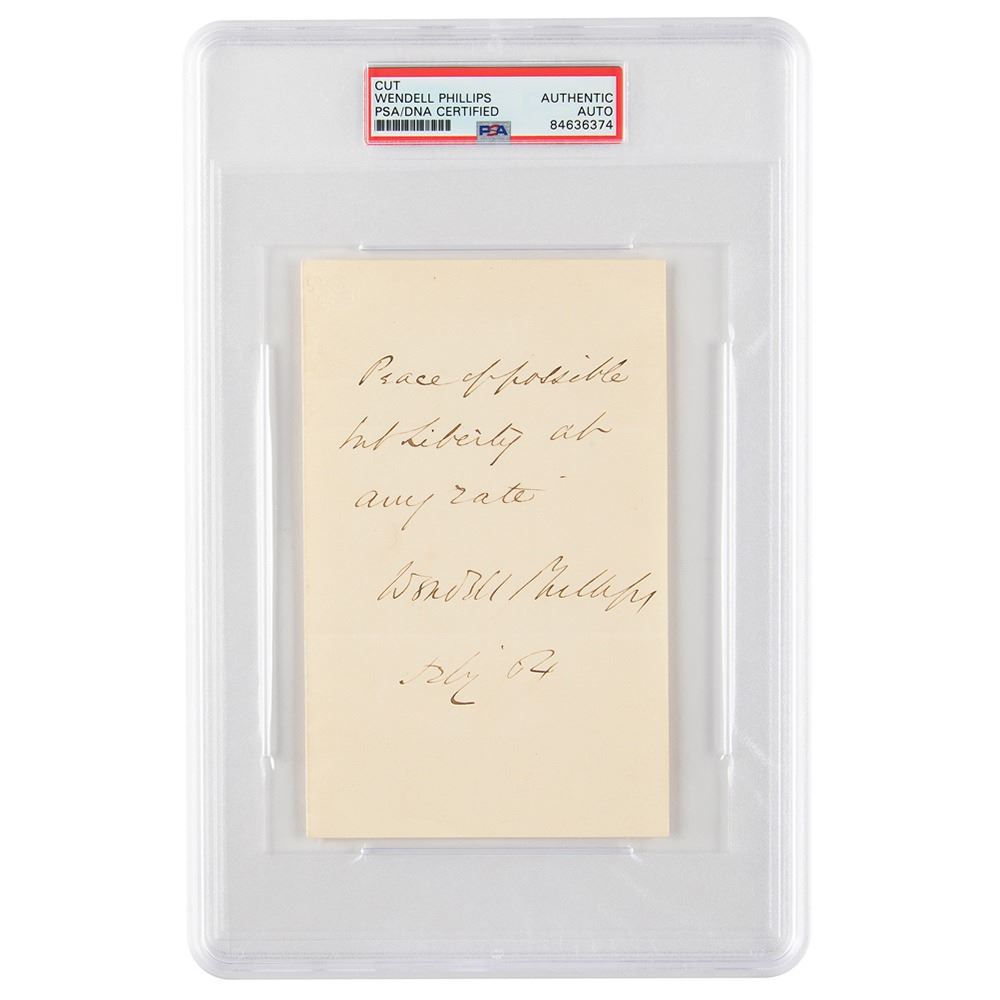 CUT
WENDELL PHILLIPS
PSA/DNA CERTIFIED
AUTHENTIC
AUTO
84636374
PSA
Peace if possible
but Liberty at
any rate
Wendell Phillips